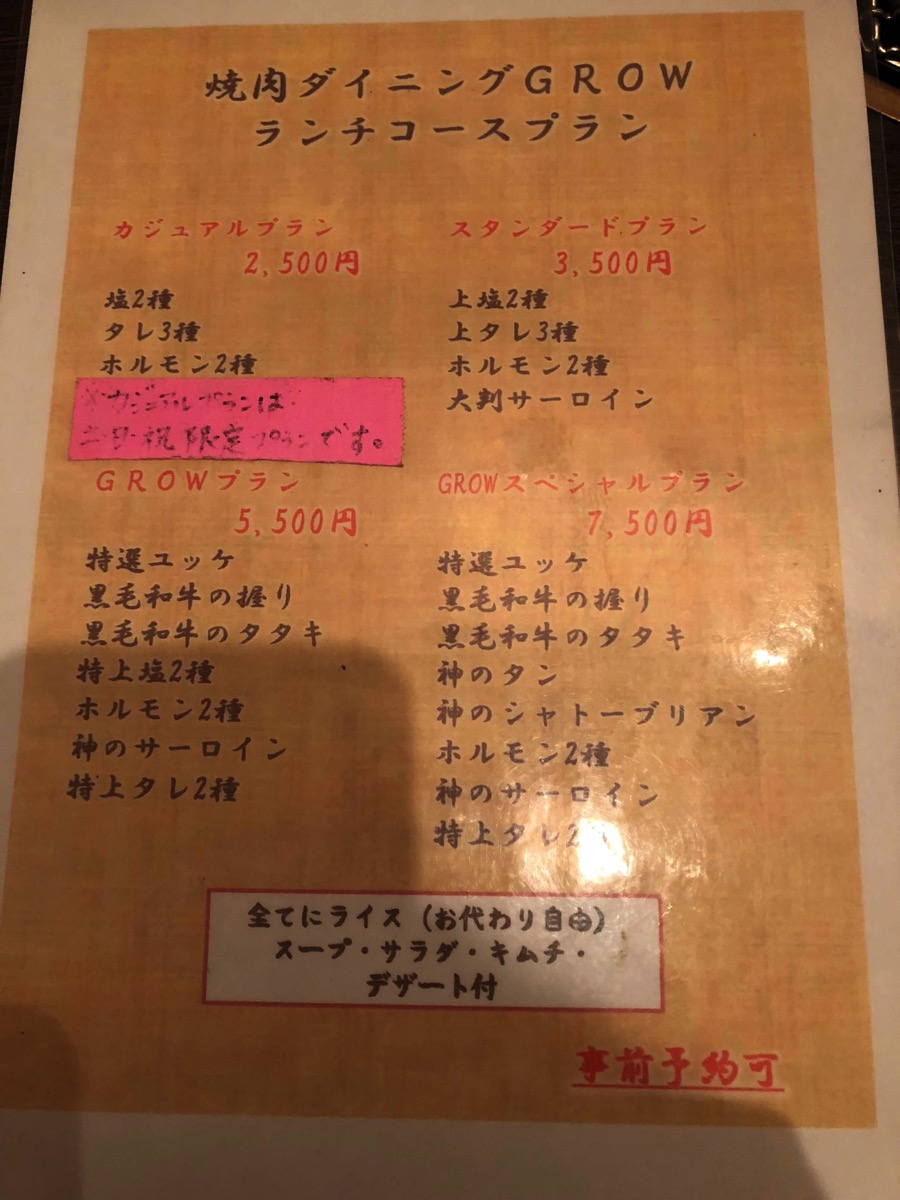 焼肉ダイニングGROW
ランチコースプラン
カジュアルプラン
2,500円
塩2種
タレ3種
ホルモン2種
※カジュアルプランは
土・日・祝限定プランです。
スタンダードプラン
3,500円
上塩2種
上タレ3種
ホルモン2種
大判サーロイン
GROWプラン
5,500円
特選ユッケ
黒毛和牛の握り
黒毛和牛のタタキ
特上塩2種
ホルモン2種
神のサーロイン
特上タレ2種
GROWスペシャルプラン
7,500円
特選ユッケ
黒毛和牛の握り
黒毛和牛のタタキ
神のタン
神のシャトーブリアン
ホルモン2種
神のサーロイン
特上タレ2
全てにライス(お代わり自由)
スープ・サラダ・キムチ・
デザート付
事前予約可